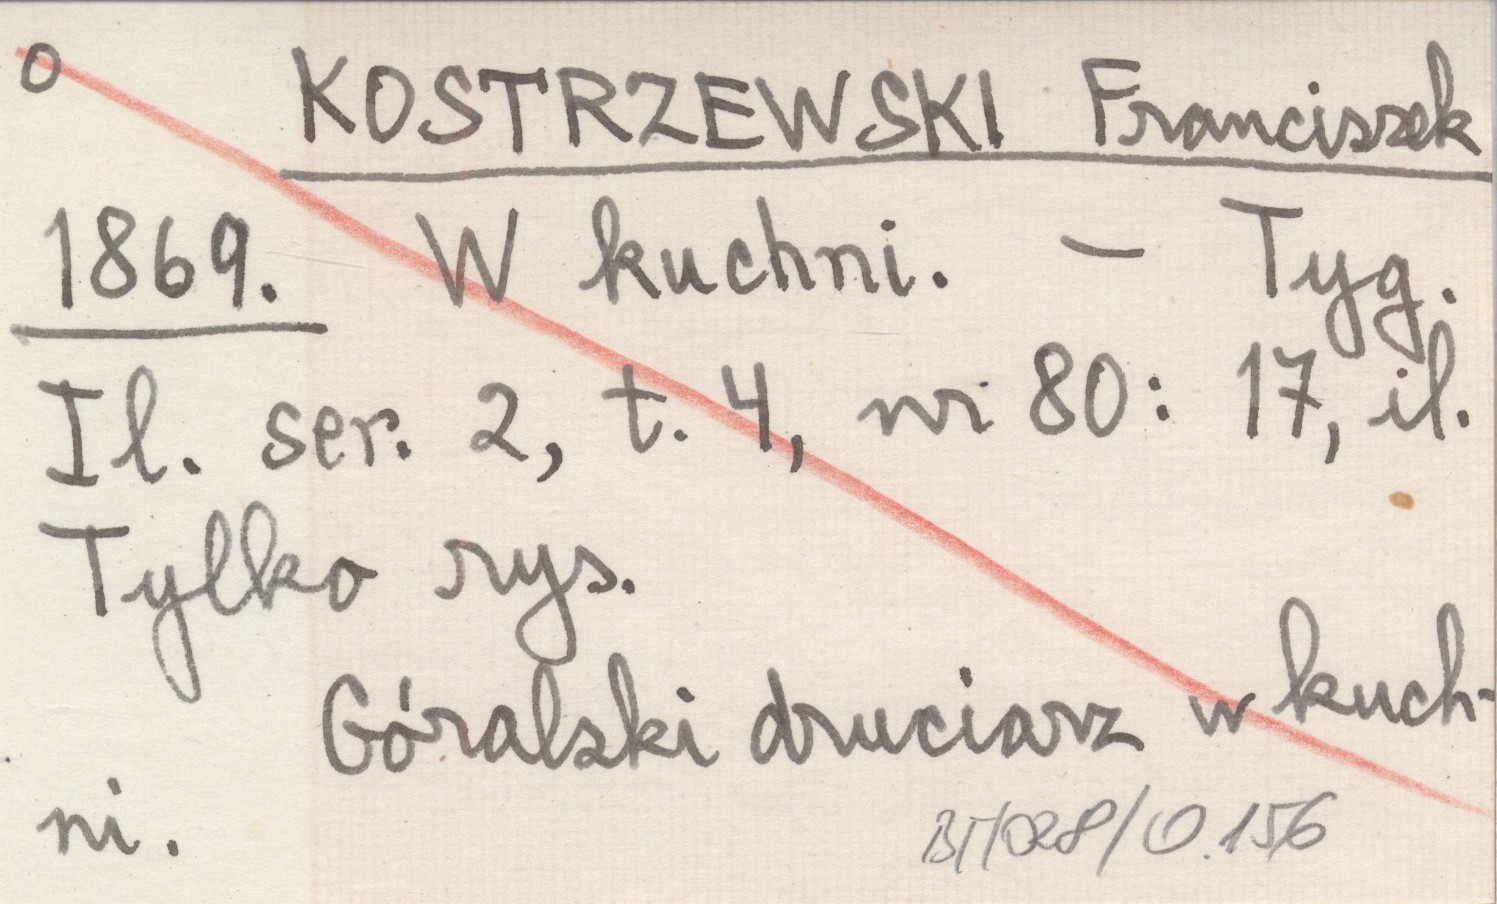 o KOSTRZEWSKI Franciszek
1869. W kuchni. – Tyg.
Il. ser. 2, t. 4, nr 80: 17, il.
Tylko rys.
Góralski druciarz w kuch-
ni.
0.156